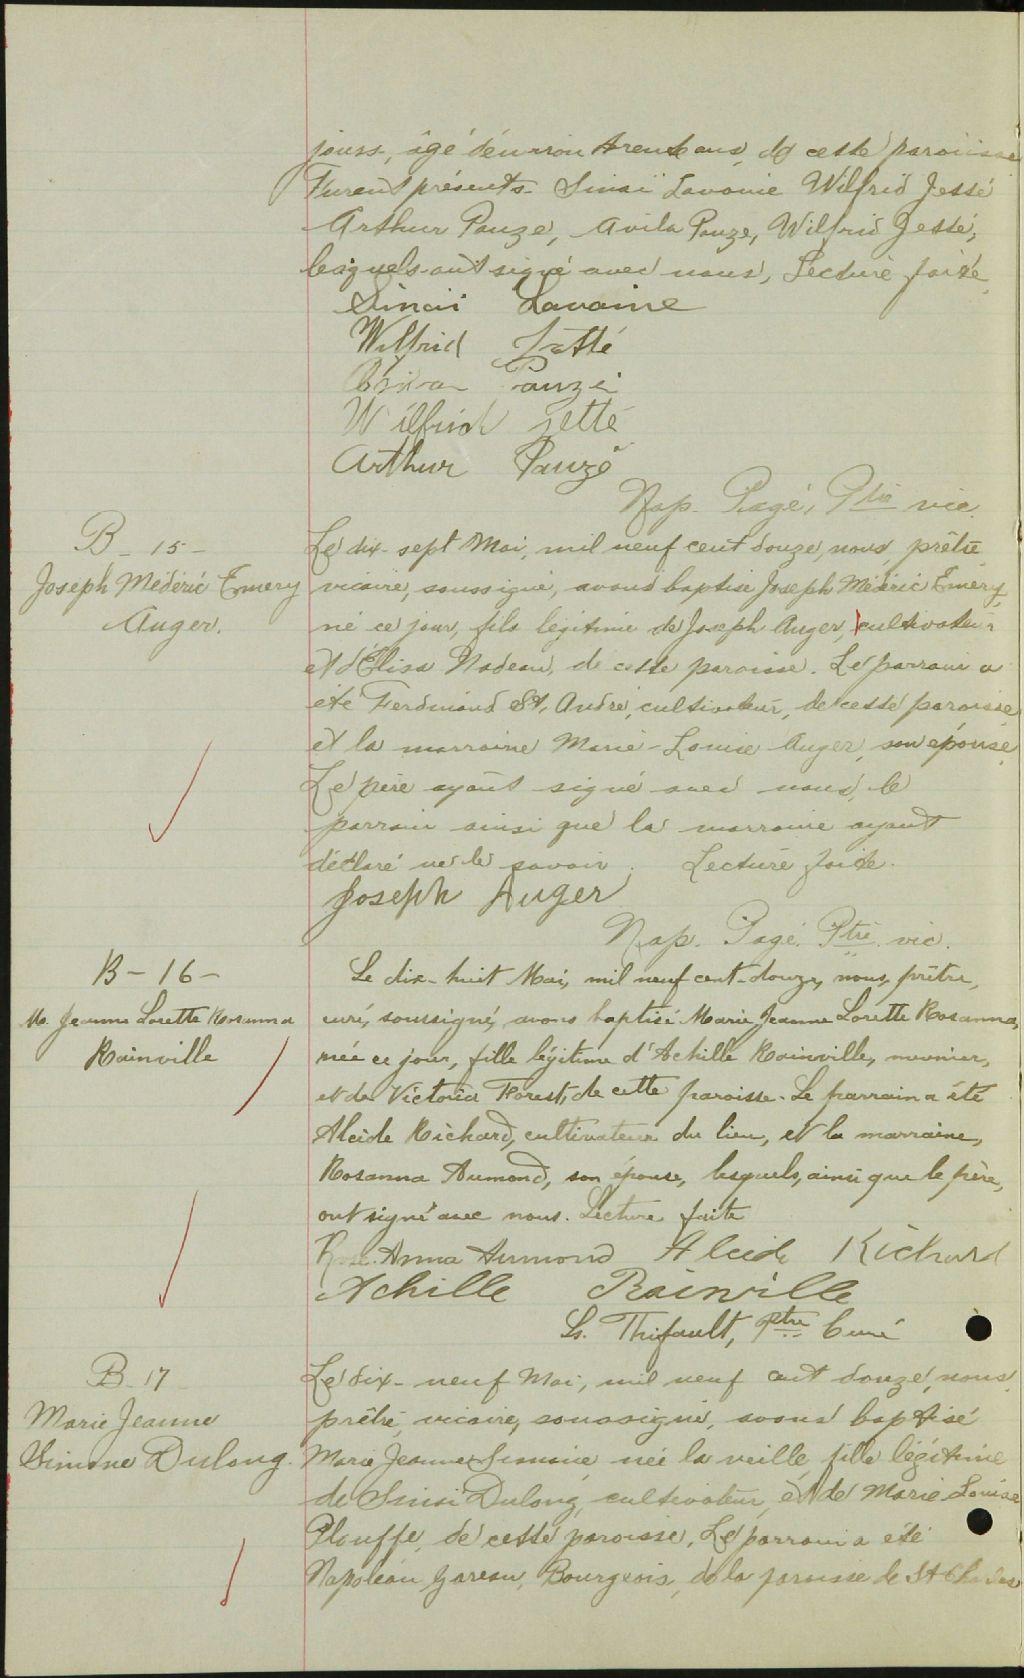 jours, âgé d'environ trente ans, de cette paroisse
Furent présents Sinaï Lavoie Wilfrid Jetté
Arthur Pauzé, Avila Pauzé, Wilfrid Jetté,
lesquels ont signé avec nous, Lecture faite.
Sinai Lavoine
Wilfrid Jetté
Pauzé
Wilfrid Jetté
Arthur Pauzé
Nap. Pagé, Ptre vic.
B - 15 -
Joseph Médéric Emery
Auger.
Le dix-sept Mai, mil neuf cent douze, nous, prêtre
vicaire, soussigné, avons baptisé Joseph Médéric Emery,
né ce jour, fils légitime de Joseph Auger, cultivateur
et d'Élisa Nadeau, de cette paroisse. Le parrain a
été Ferdinand St. André, cultivateur, de cette paroisse
et la marraine Marie-Louise Auger, son épouse.
Le père ayant signé avec nous, le
parrain ainsi que la marraine ayant
déclaré ne le savoir. Lecture faite.
Joseph Auger
Nap. Pagé. Ptre vic.
B - 16 -
M. Jeanne Lorette Rosanna
Rainville
Le dix-huit Mai, mil neuf cent-douze, nous, prêtre,
curé, soussigné, avons baptisé Marie Jeanne Lorette Rosanna,
née ce jour, fille légitime d'Achille Rainville, meunier,
et de Victoria Forest, de cette paroisse. Le parrain a été
Alcide Richard, cultivateur du lieu, et la marraine,
Rosanna Aumond, son épouse, lesquels, ainsi que le père,
ont signé avec nous. Lecture faite
Rose. Anna Aumond Alcide Richard
Achille Rainville
Ls. Thifault, Ptre Curé
B - 17
Marie Jeanne
Simone Dulong.
Le dix-neuf Mai, mil neuf cent douze, nous,
prêtre, vicaire, soussigné, avons baptisé
Marie Jeanne Simone née la veille, fille légitime
de Sinai Dulong, cultivateur, et de Marie Louise
Plouffe, de cette paroisse. Le parrain a été
Napoléon Gareau, Bourgeois, de la paroisse de St Charles